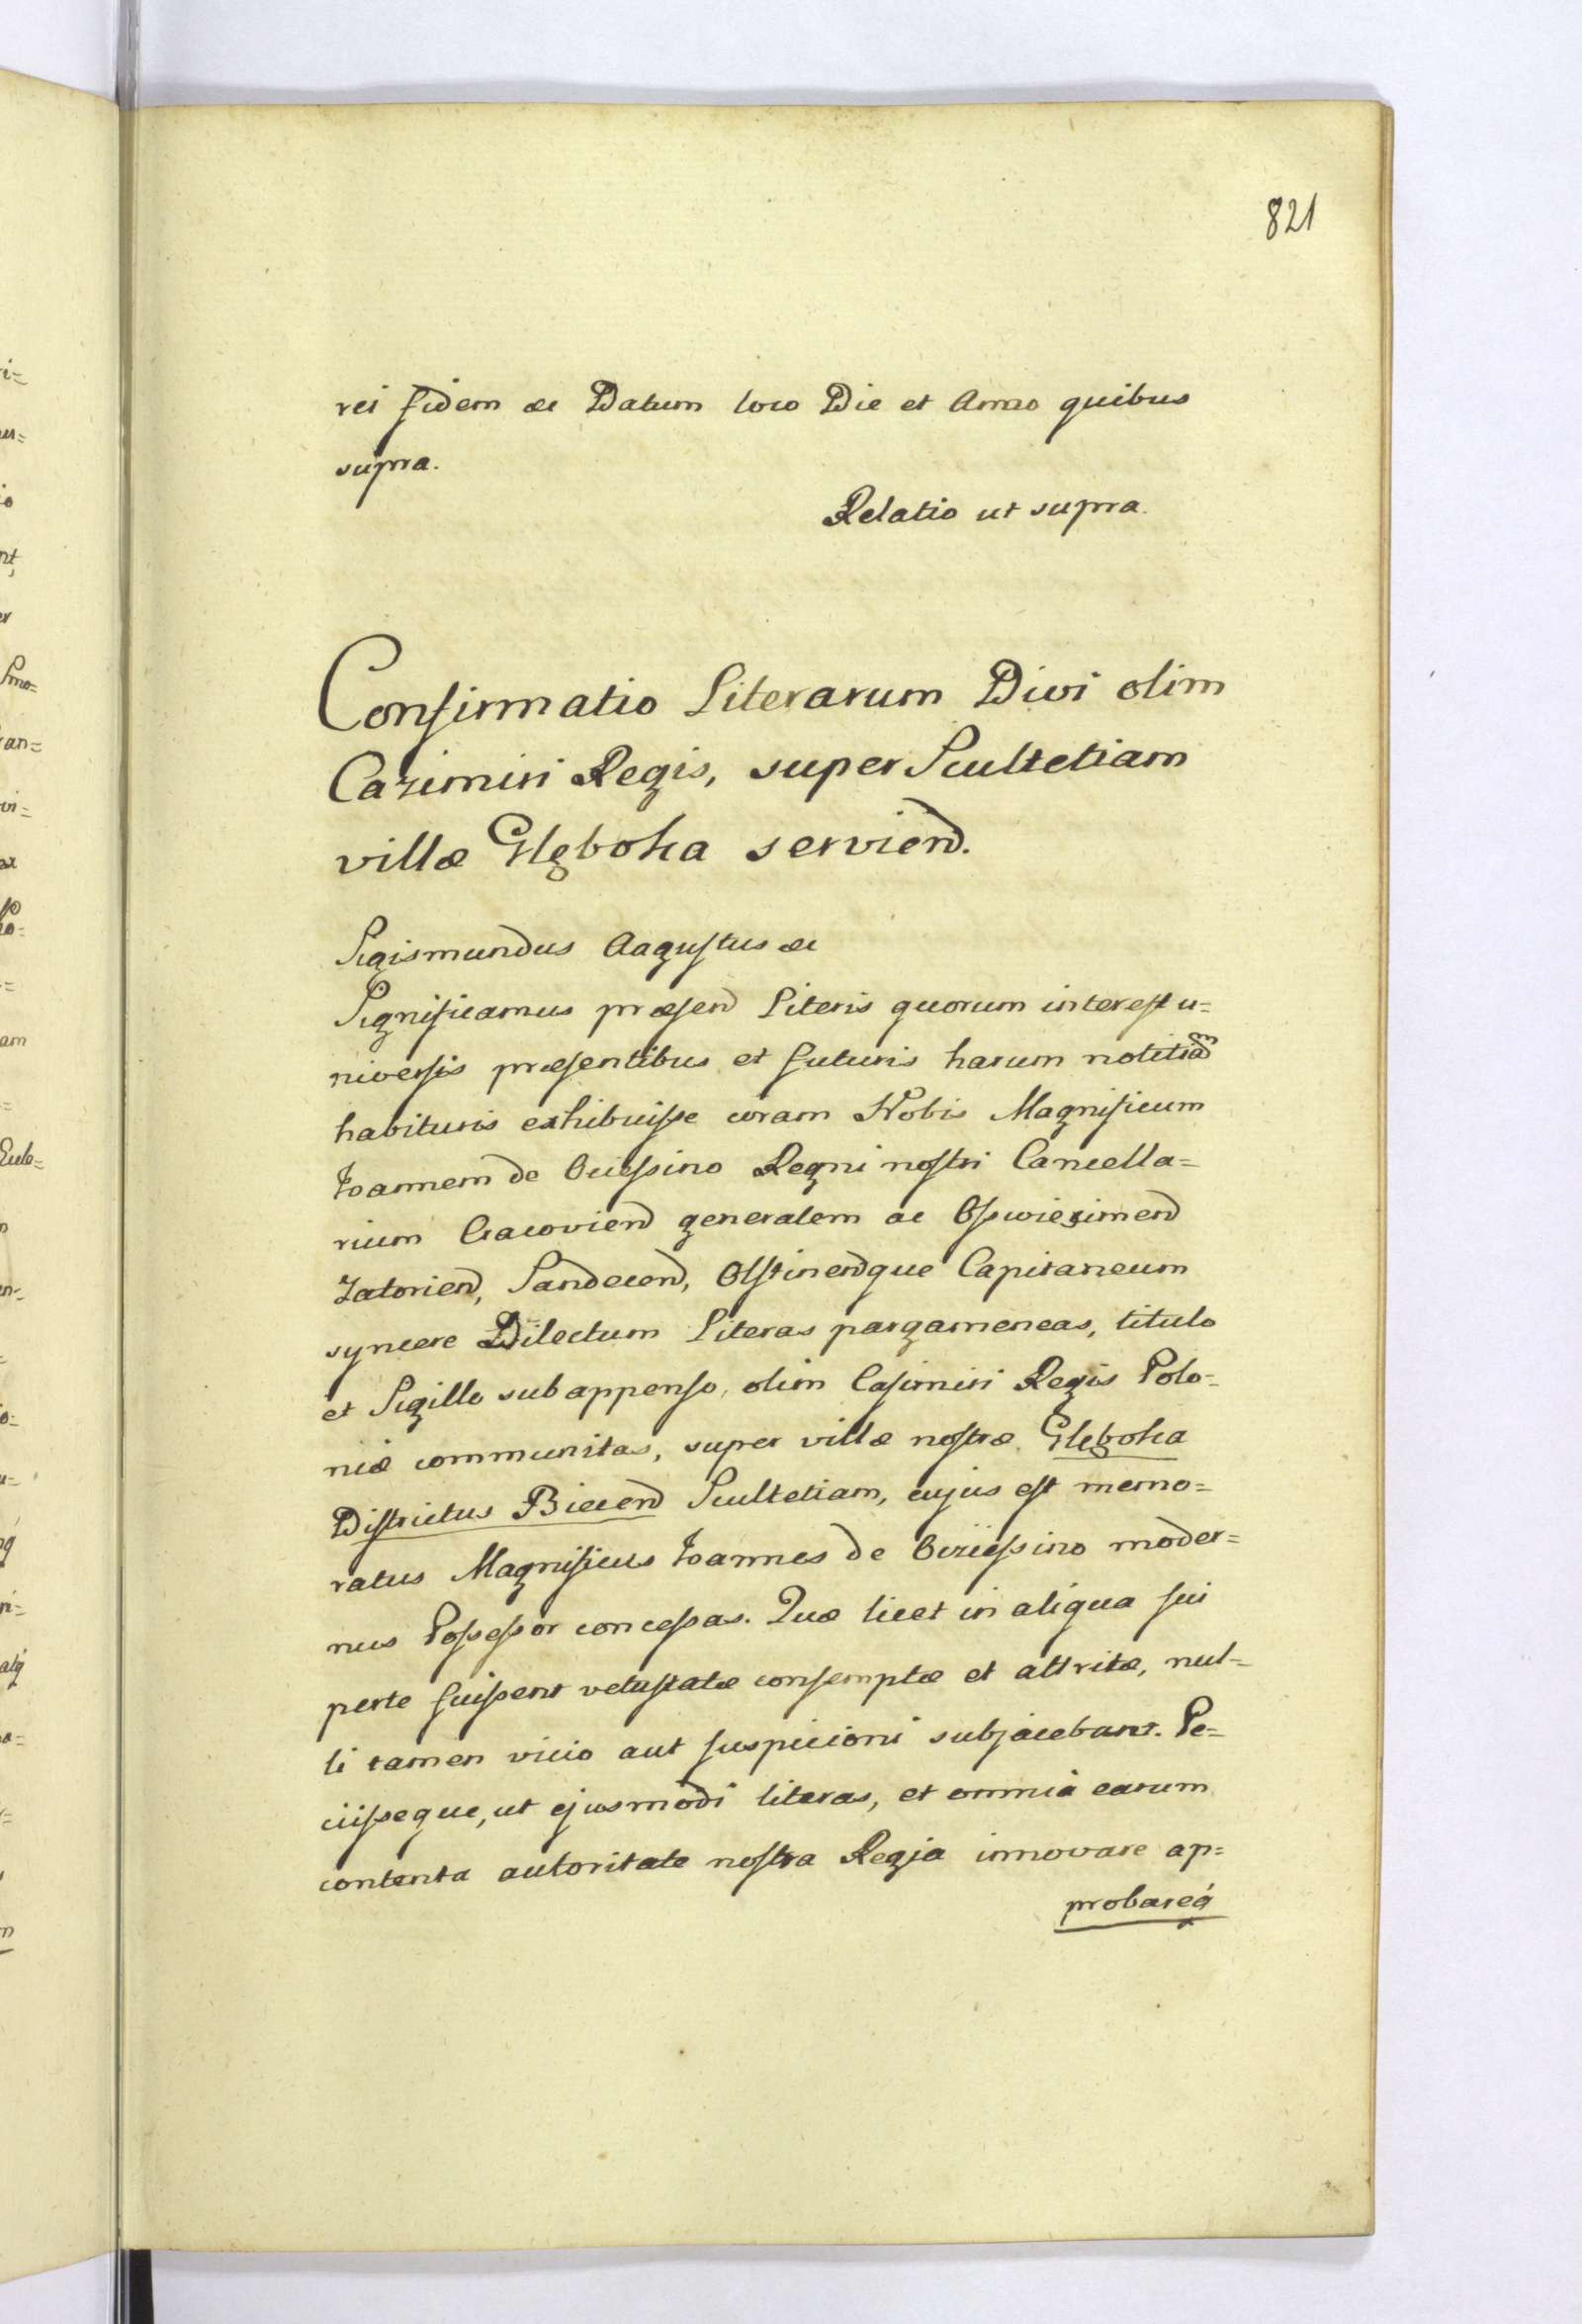 821
rei fidem &c Datum loco Die et Anno quibus
supra.
Relatio ut supra.
Confirmatio Literarum Divi olim
Cazimiri Regis, super Scultetiam
villæ Glęboka serviend.
Sigismundus Aagustus &c
Significamus præsend Literis quorum interest u=
niversis præsentibus et futuris harum notitiam
habituris exhibuisse coram Nobis Magnificum
Joannem de Ociessino Regni nostri Cancella=
rium Cracoviend generalem ac Osswieximend
Zatoriend, Sandecend, Olstinendque Capitaneum
syncere Dilectum Literas pargameneas, titulo
et Sigillo sub appenso, olim Casimiri Regis Polo=
niæ communitas, super villæ nostræ Glęboka
Districtus Biecend Scultetiam, cujus est memo=
ratus Magnificus Joannes de Ocziessino moder=
nus Possessor concessas. Quæ licet in aliqua sui
perte fuissent vetustatæ consemptæ et attritæ, nul=
li tamen vicio aut suspicioni subjacebant. Pe=
ciisseque, ut ejusmodi literas, et omnia earum
contenta autoritate nostra Regia innovare ap=
probareq́